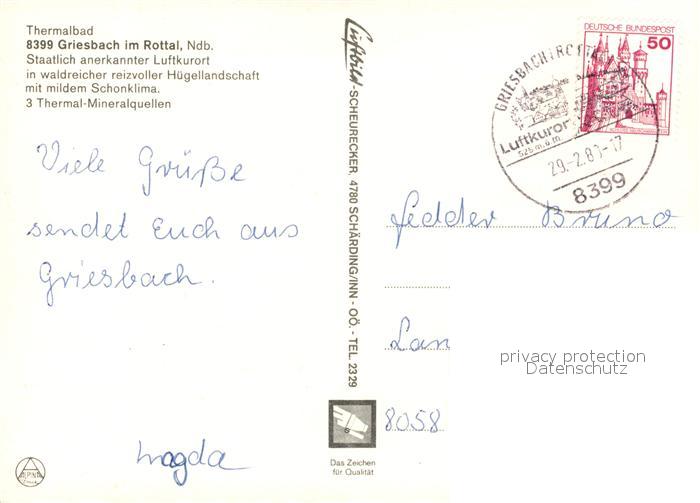 Thermalbad
8399 Griesbach im Rottal, Ndb.
Staatlich anerkannter Luftkurort
in waldreicher reizvoller Hügellandschaft
mit mildem Schonklima.
3 Thermal-Mineralquellen
Viele Grüße
sendet Euch aus
Griesbach.
Magda
Luftbild-SCHEURECKER, 4780 SCHÄRDING/INN - OÖ. - TEL. 2329
Das Zeichen
für Qualität
DEUTSCHE BUNDESPOST
50
GRIESBACH I ROTTAL
Luftkurort
525 m.ü.m.
29.-2.80.-17
8399
Fedder Bruno
Lan
8058
privacy protection
Datenschutz